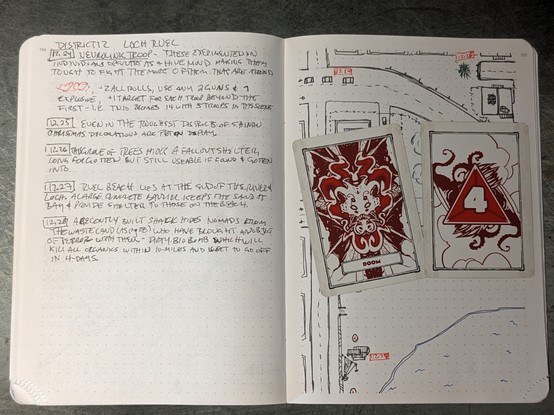 DISTRICT 12 LOCH RUEL
12.24 NEUROLINK TROOP - THESE EXPERIMENTED ON
INDIVIDUALS OPERATE AS A HIVE MIND MAKING THEM
TOUGH TO FIGHT THE MORE OF THEM THAT ARE AROUND
+2 ALL ROLLS, USE ANY 2 GUNS & 1
EXPLOSIVE, +1 TARGET FOR EACH TROOP BEYOND THE
FIRST - I.E. THIS BECOMES 14 WITH 5 TROOPS IN THIS SCENE
12.25 EVEN IN THE TOUGHEST DISTRICTS OF
CHRISTMAS DECORATIONS ARE PUT ON DISPLAY.
12.26 THIS GROVE OF TREES HIDES A FALLOUT SHELTER,
LONG FORGOTTEN BUT STILL USEABLE IF FOUND & GOTTEN
INTO.
12.27 RUEL BEACH LIES AT THE END OF THIS RIVER &
LOCH. A LARGE CONCRETE BARRIER KEEPS THE SAND AT
BAY & PROVIDE SHELTER TO THOSE ON THE BEACH.
12.28 A RECENTLY BUILT SHACK HIDES NOMADS FROM
THE WASTELAND WHO HAVE BROUGHT A
OF TERROR WITH THEM - DIRTY BIO BOMB WHICH WILL
KILL ALL ORGANICS WITHIN 10 MILES AND IS SET TO GO OFF
IN 4 DAYS.
DOOM
4